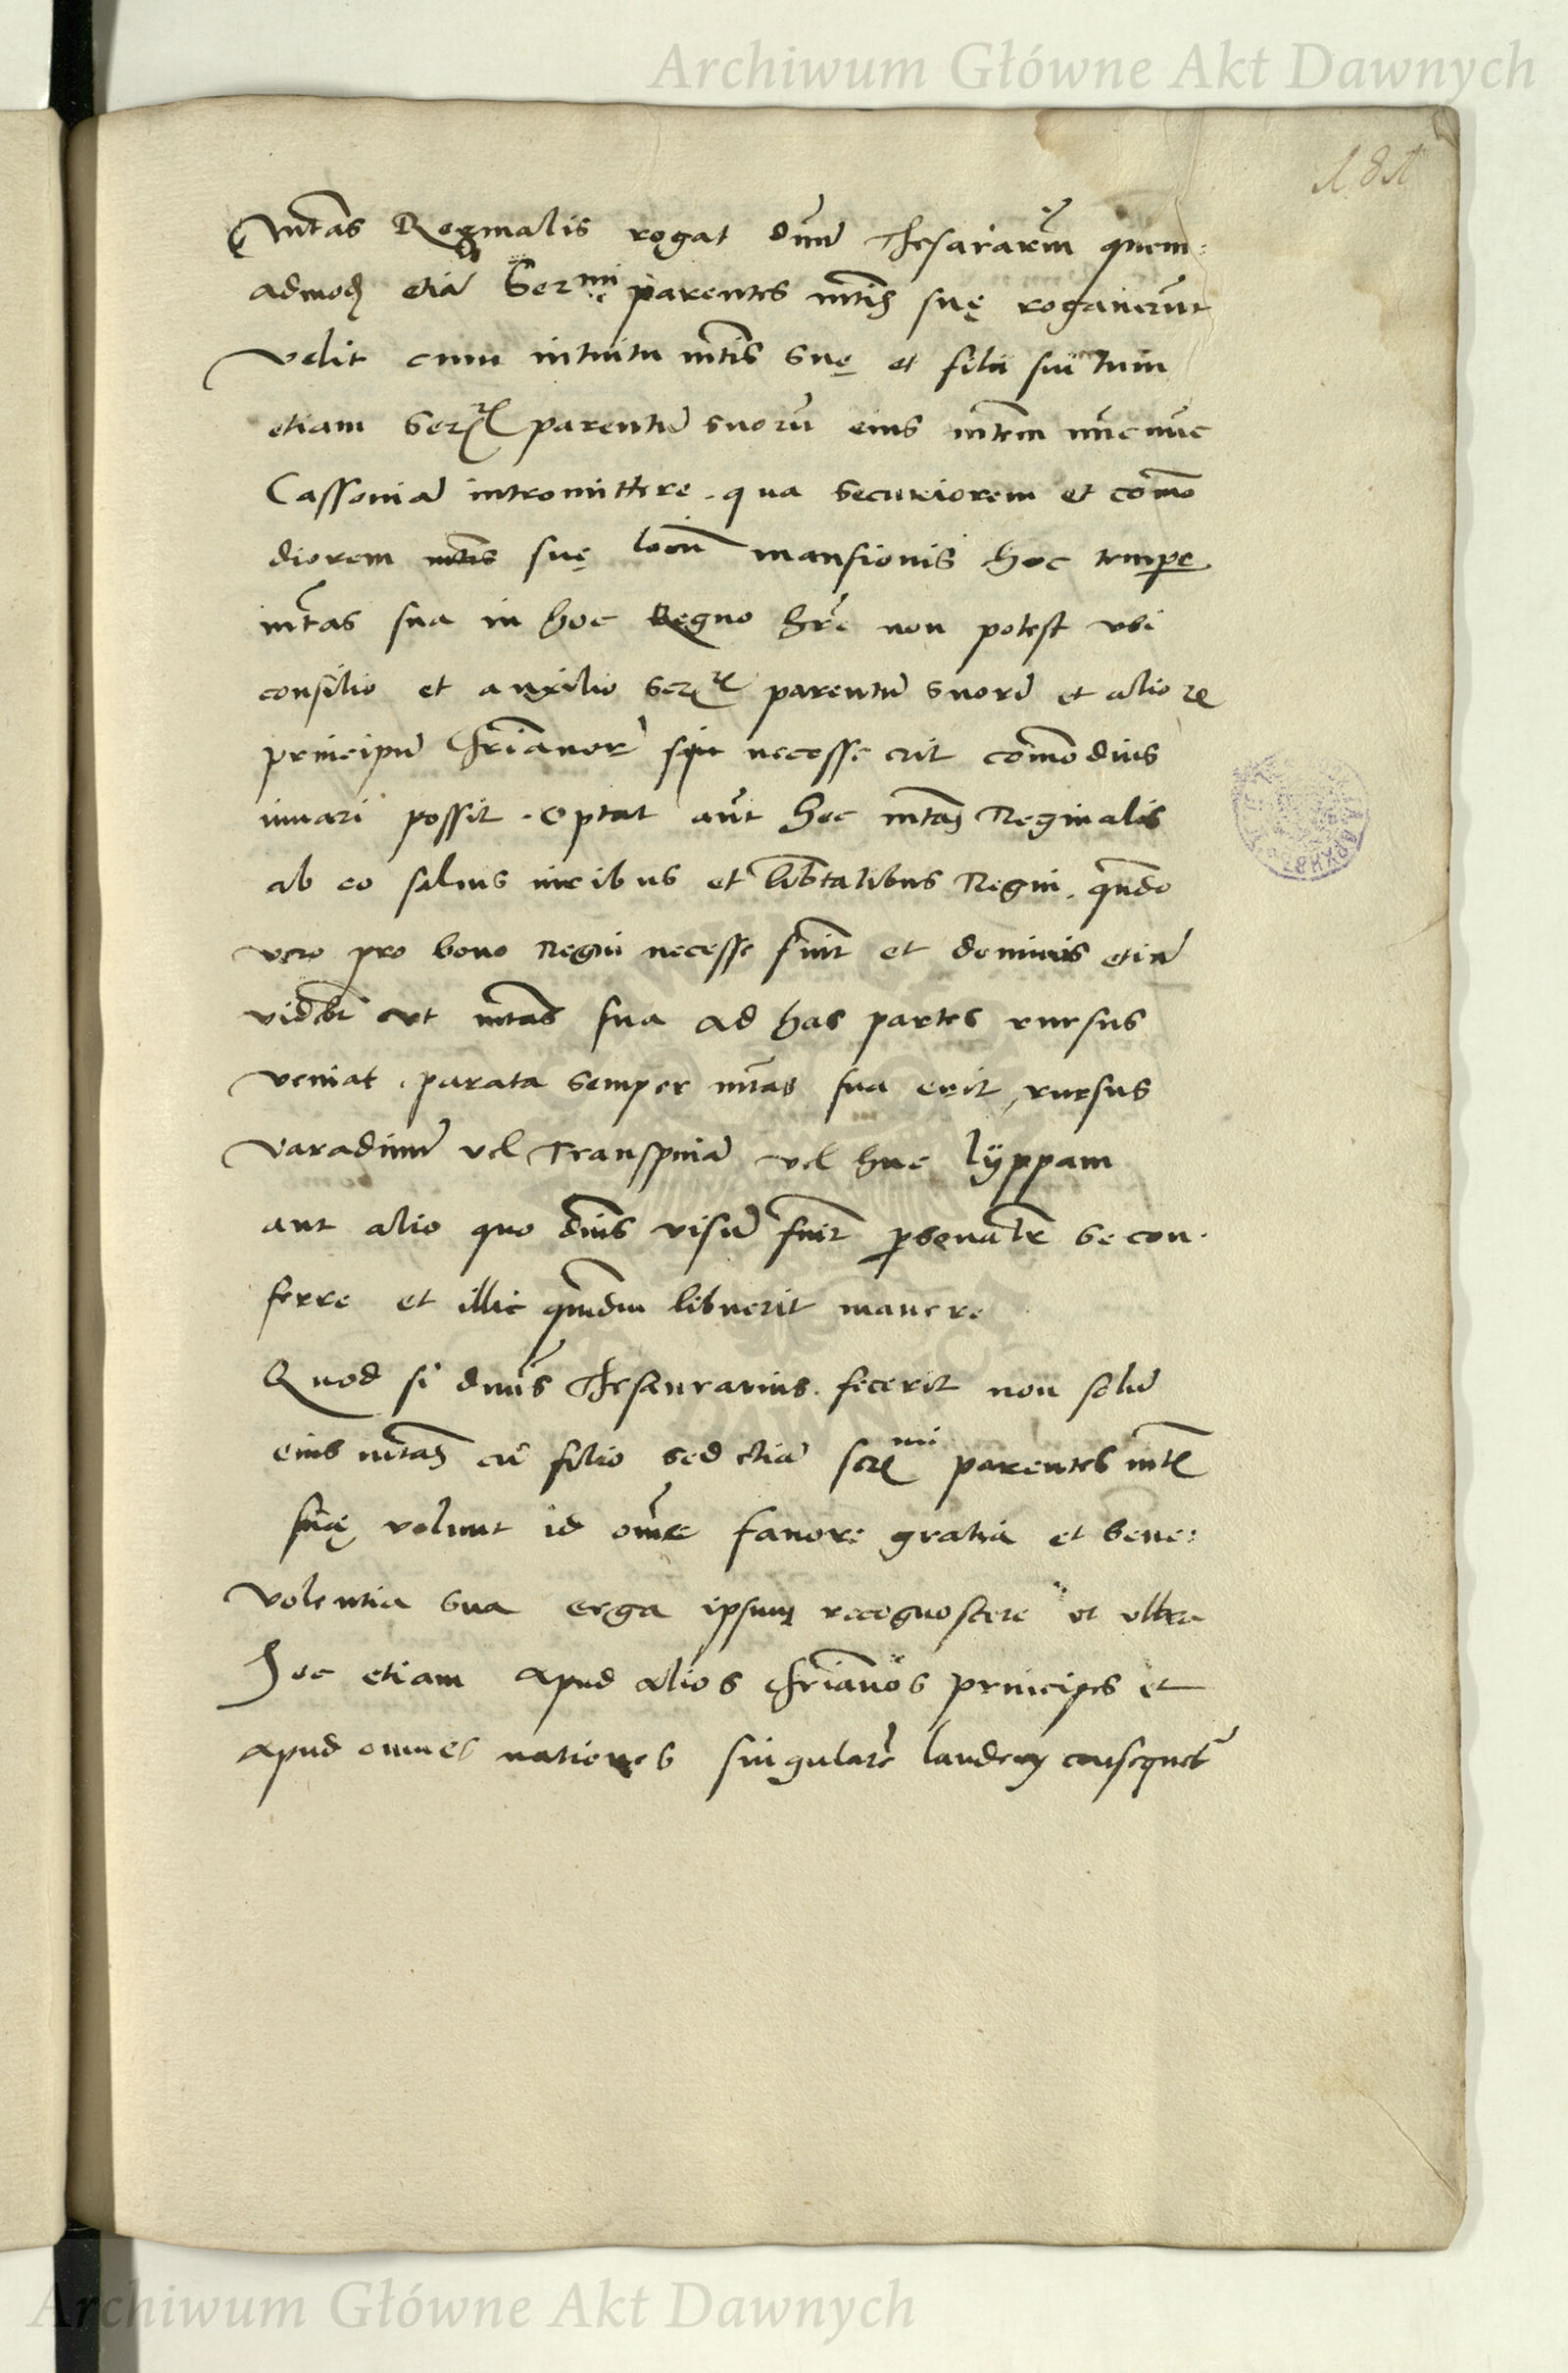 Archiwum Główne Akt Dawnych
181
Mtas Reginalis rogat dnm Thesararium quem:
admod etia Ser mi parentes mtis suę rogaverunt
velit cum intuitu mtis suę et filii sui tum
etiam Ser parentu suoru eius mtem nunc
Cassovia intromittere. qua securiorem et commo
diorem mtis suę locu mansionis hoc tempe
mtas sua in hoc Regno hre non potest ubi
consilio et auxilio ser parentu suoru et alior
principu Chrianor necesse erit commodius
iuvari possit. Optat aut hoc mtas Reginalis
ab eo salvis iuribus et libtatibus Regni. quando
vero pro bono Regni necesse fuit et dominis etia
videbit ut mtas sua ad has partes rursus
veniat. parata semper mtas sua erit rursus
Varadinu vel Transpnia vel huc Lyppam
aut alio quo dnis visu fuit psonalr se con-
ferre et illic qmdiu libuerit manere
Quod si dnus Thesaurarius fecerit non solu
eius mtas cu filio sed etia ser mi parentes mts
suę volunt id omi favore gratia et bene:
volentia sua erga ipsum recognoscere et ultra
Hoc etiam apud alios Chrianos principes et
apud omnes nationes singulare laudem consequet
Archiwum Główne Akt Dawnych